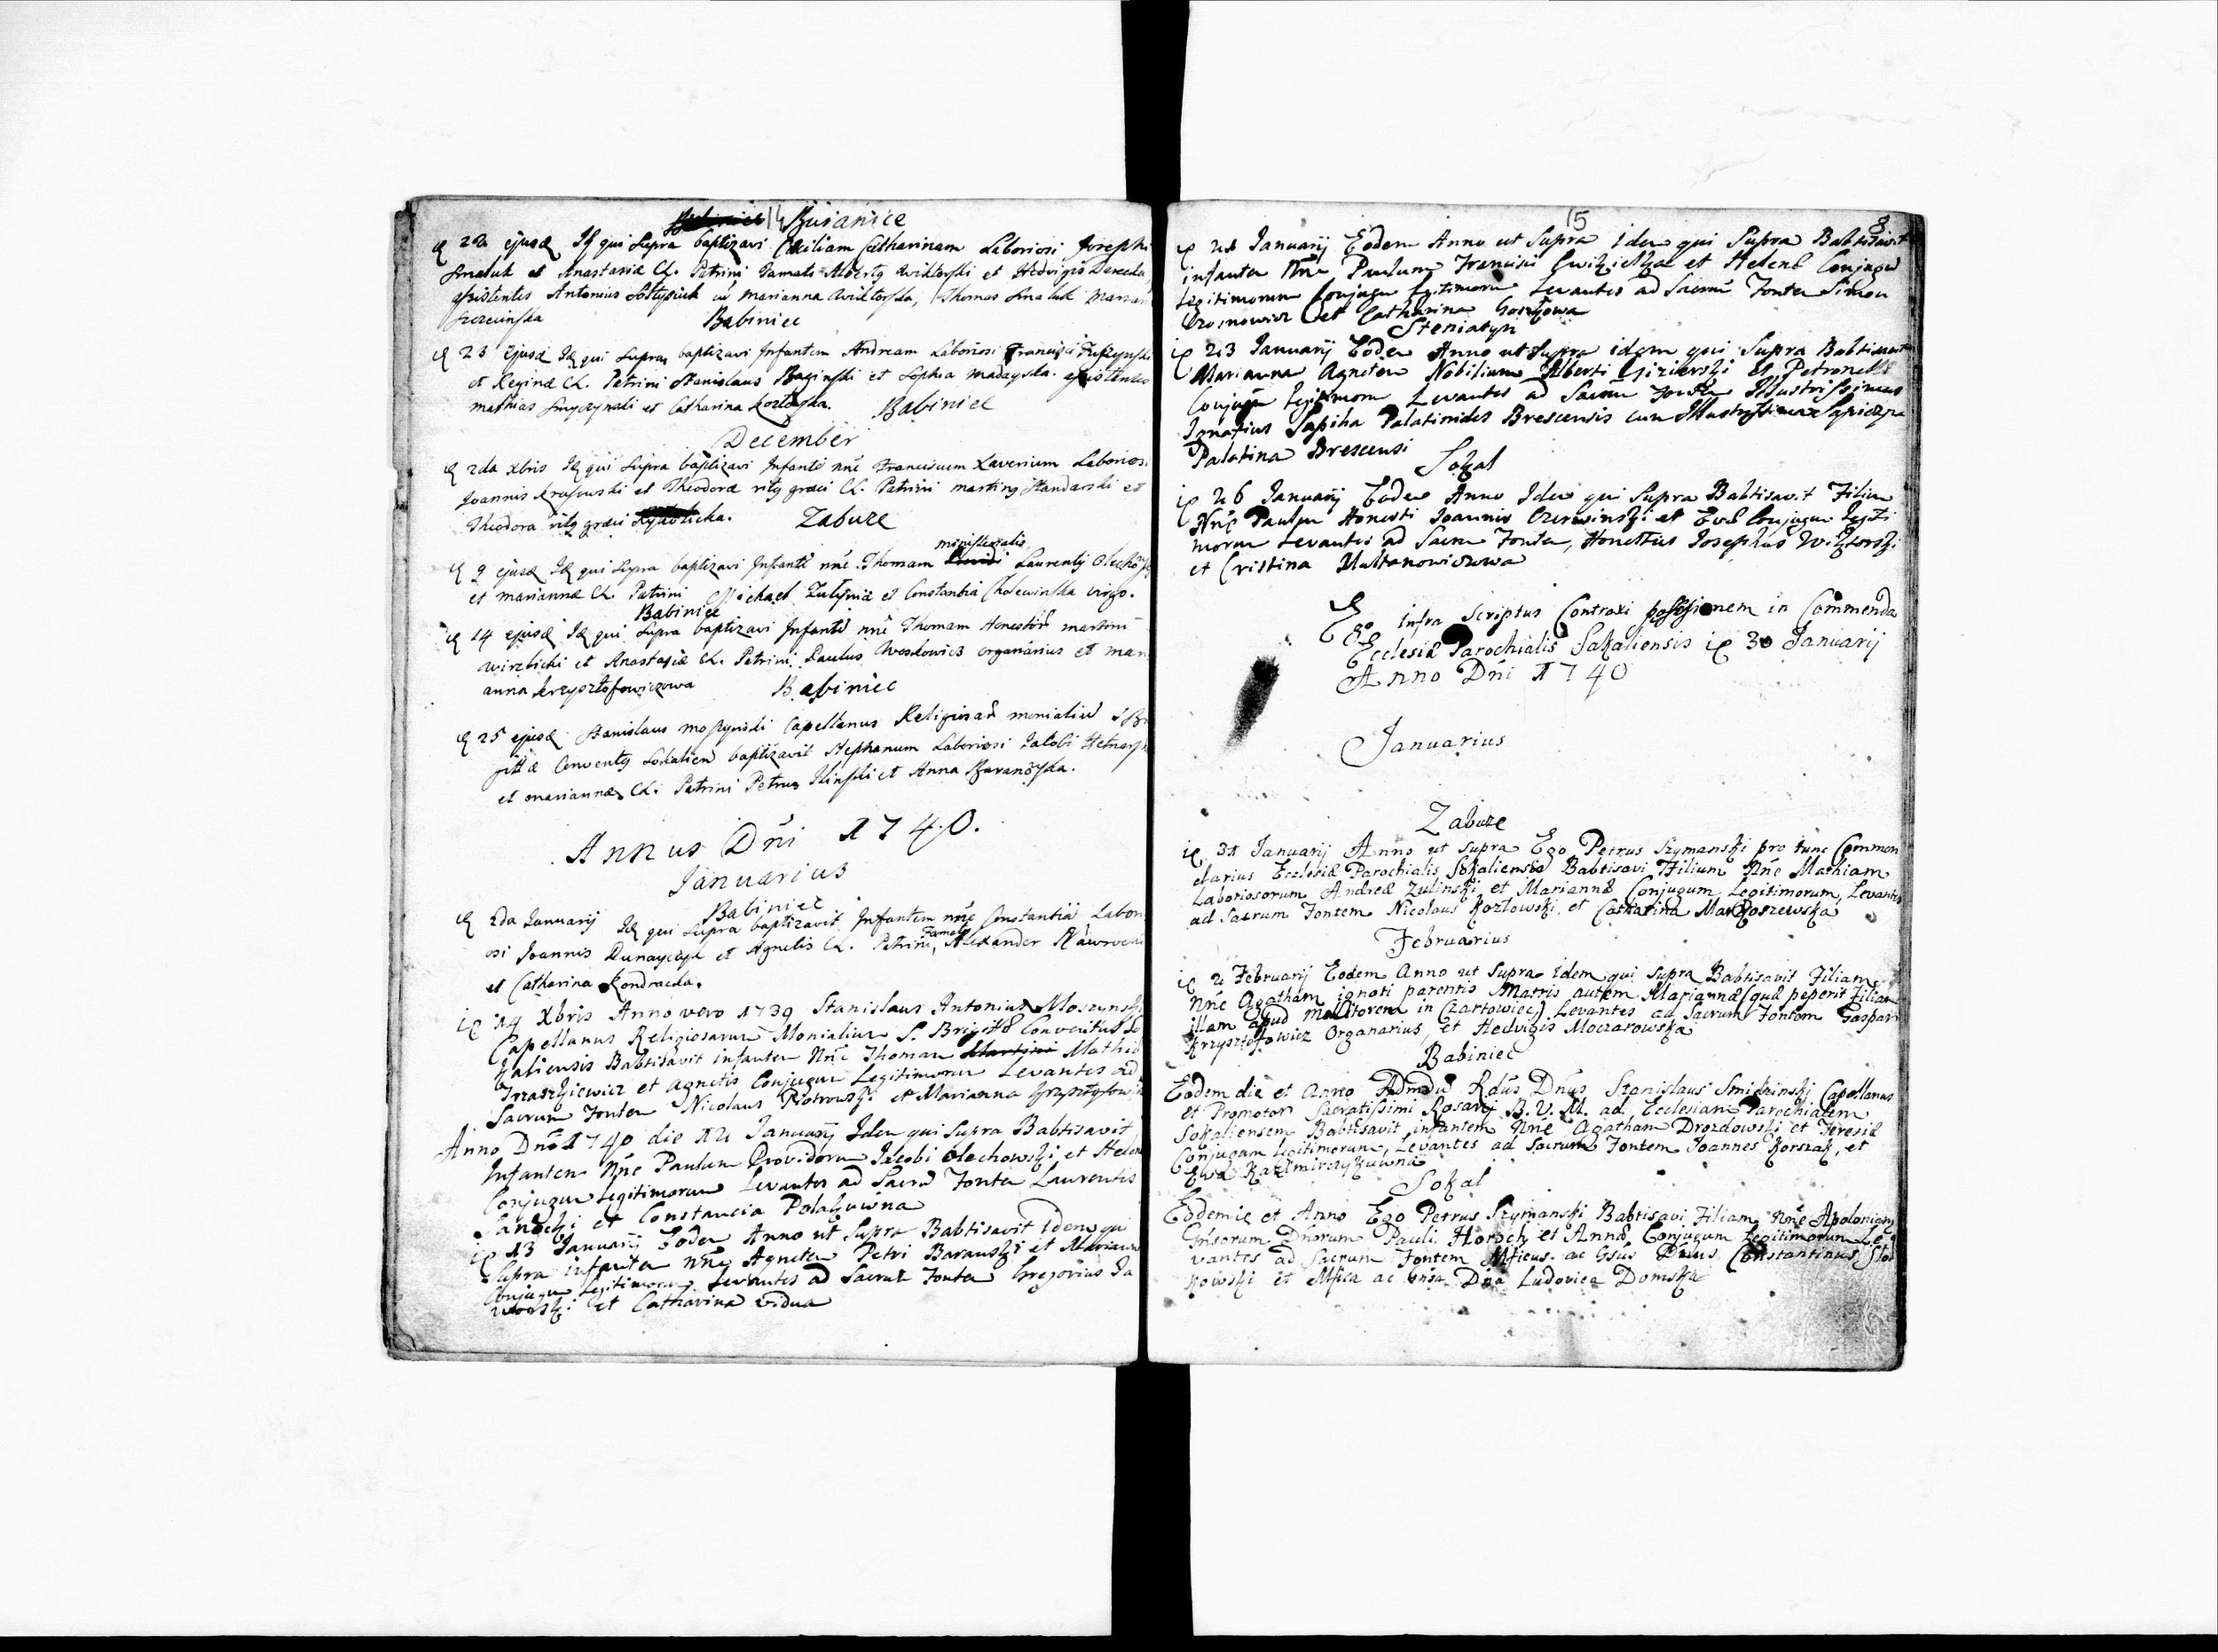 14 Busianice
22 ejusd Id qui supra baptizavi Cæciliam Catharinam Laboriosi Josephi
et Anastasiæ CL. Patrini Famatg Albertg Wiktorski et Hedvigis
assistentes Antonius Soltysiuk cū Marianna Wiktorska, Thomas Smaluk
Babiniec
23 ejusd Id qui supra baptizavi Infantem Andream Laboriosi Francisci
et Reginæ CL. Patrini Stanislaus Baginski et Sophia Madayska. assistentes
Mathias Smyczynski et Catharina Kozloska. Babiniec
December
2da Xbris Id qui supra baptizavi Infantē nn̄e Franciscum Xaverium Laborios
Joannis et Theodoræ ritg græci CL. Patrini Marting Standarski et
Theodora ritg græci Zabuze
ministerialis
9 ejusd Id qui supra baptizavi Infantē nn̄e Thomam Laurentij
et Mariannæ CL. Patrini Michael et Constantia Cholewinska virgo.
Babiniec
14 ejusd Id qui supra baptizavi Infantē nn̄e Thomam Honestor Martini
Wirzbicki et Anastasiæ CL. Patrini Paulus Woskowicz organarius et Mari
anna Krzysztofowiczowa Babiniec
25 ejusd Stanislaus Moszynski Capellanus Religiosarū monialiū S Bri
gittæ Conventg Sokalien baptizavit Stephanum Laboriosi Jacobi
et Mariannæ CL. Patrini Petrus Ilinski et Anna Baranoska.
Annus Dn̄i 1740.
Januarius
Babiniec
2da Januarij Id qui supra baptizavit Infantem nn̄e Constantiā Labori
Famatg
osi Joannis Dunayczyk et Agnetis CL. Patrini, Alexander
et Catharina Kondracka.
14 Xbris Anno vero 1739 Stanislaus Antonius Moszynski
Capellanus Religiosarum Monialium S. Brigittæ Conventus So
kaliensis Babtisavit infantem Nn̄e Thomam Martini Mathiæ
et Agnetis Conjugum Legitimorum Levantes ad
Sacrum Fontem Nicolaus Piotrowski et Marianna
Anno Dn̄i 1740 die 12 Januarij Idem qui Supra Babtisavit
Infantem Nn̄e Paulum Providorum Jacobi Olechowski et Helenæ
Conjugum Legitimorum Levantes ad Sacrū Fontem Laurentis
et Constancia
13 Januarij Eodem Anno ut Supra Babtisavit Idem qui
Supra infantem nn̄e Agnetem Petri Baranski et Mariannæ
Conjugum Legitimorum Levantes ad Sacrum Fontem Gregorius Ja
worski et Catharina vidua
15 8
21 Januarij Eodem Anno ut Supra Idem qui Supra Babtisavit
infantem Nn̄e Paulum Francisci et Helenæ Conjugum
Legitimorum Conjugum Legitimorum Levantes ad Sacrum Fontem Simeon
et Catharina
Steniatyn
23 Januarij Eodem Anno ut Supra idem qui Supra Babtisavit
Mariannam Agnetem Nobilium Alberti Gizierski et Petronellæ
Conjugum Legitimorum Levantes ad Sacrum Fontem Illustrissimus
Ignatius Sapiha Palatinides Brescensis cum Illustrissima Sapiezyna
Palatina Brescensi
Sokal
26 Januarij Eodem Anno Idem qui Supra Babtisavit Filium
Nn̄e Paulum Honesti Joannis Czerwinski et Evæ Conjugum Legiti
morum Levantes ad Sacrum Fontem, Honestus Josephus Wiktorski
et Cristina Multanowiczowa
Ego infra Scriptus Contraxi possessionem in Commenda
Ecclesiæ Parochialis Sokaliensis 30 Januarij
Anno Dn̄i 1740
Januarius
Zabuze
31 Januarij Anno ut supra Ego Petrus Szymanski pro tunc Commen
darius Ecclesiæ Parochialis Sokaliensis Babtisavi Filium Nn̄e Mathiam
Laboriosorum Andreæ Zulinski et Mariannæ Conjugum Legitimorum, Levantes
ad Sacrum Fontem Nicolaus Kozlowski, et Catharina Markoszewska
Februarius
2 Februarij Eodem Anno ut Supra Idem qui Supra Babtisavit Filiam
Nn̄e Agatham ignoti parentis Matris autem Mariannæ (quæ peperit Filiam
illam apud Molitorem in Czartowiec) Levantes ad Sacrum Fontem Gaspar
Krzysztofowicz Organarius, et Hedvigis Moczarowska
Babiniec
Eodem die et Anno Admdū Rdūs Dnūs Stanislaus Capellanus
et Promotor Sacratissimi Rosarij B. V. M. ad Ecclesiam Parochialem
Sokaliensem Babtisavit infantem Nn̄e Agatham Drozdowski et Teresiæ
Conjugum Legitimorum, Levantes ad Sacrum Fontem Joannes Korszak, et
Ewa Kazimirczykuwna
Sokal
Eodemie et Anno Ego Petrus Szymanski Babtisavi Filiam Nn̄e Apoloniam
Gn̄sorum Dn̄orum Pauli Horoch et Annæ Conjugum Legitimorum Le
vantes ad Sacrum Fontem Mficus ac Gsus Dnus Constantinus
kowski et Mfica ac Gnsa Dna Ludovica Domska